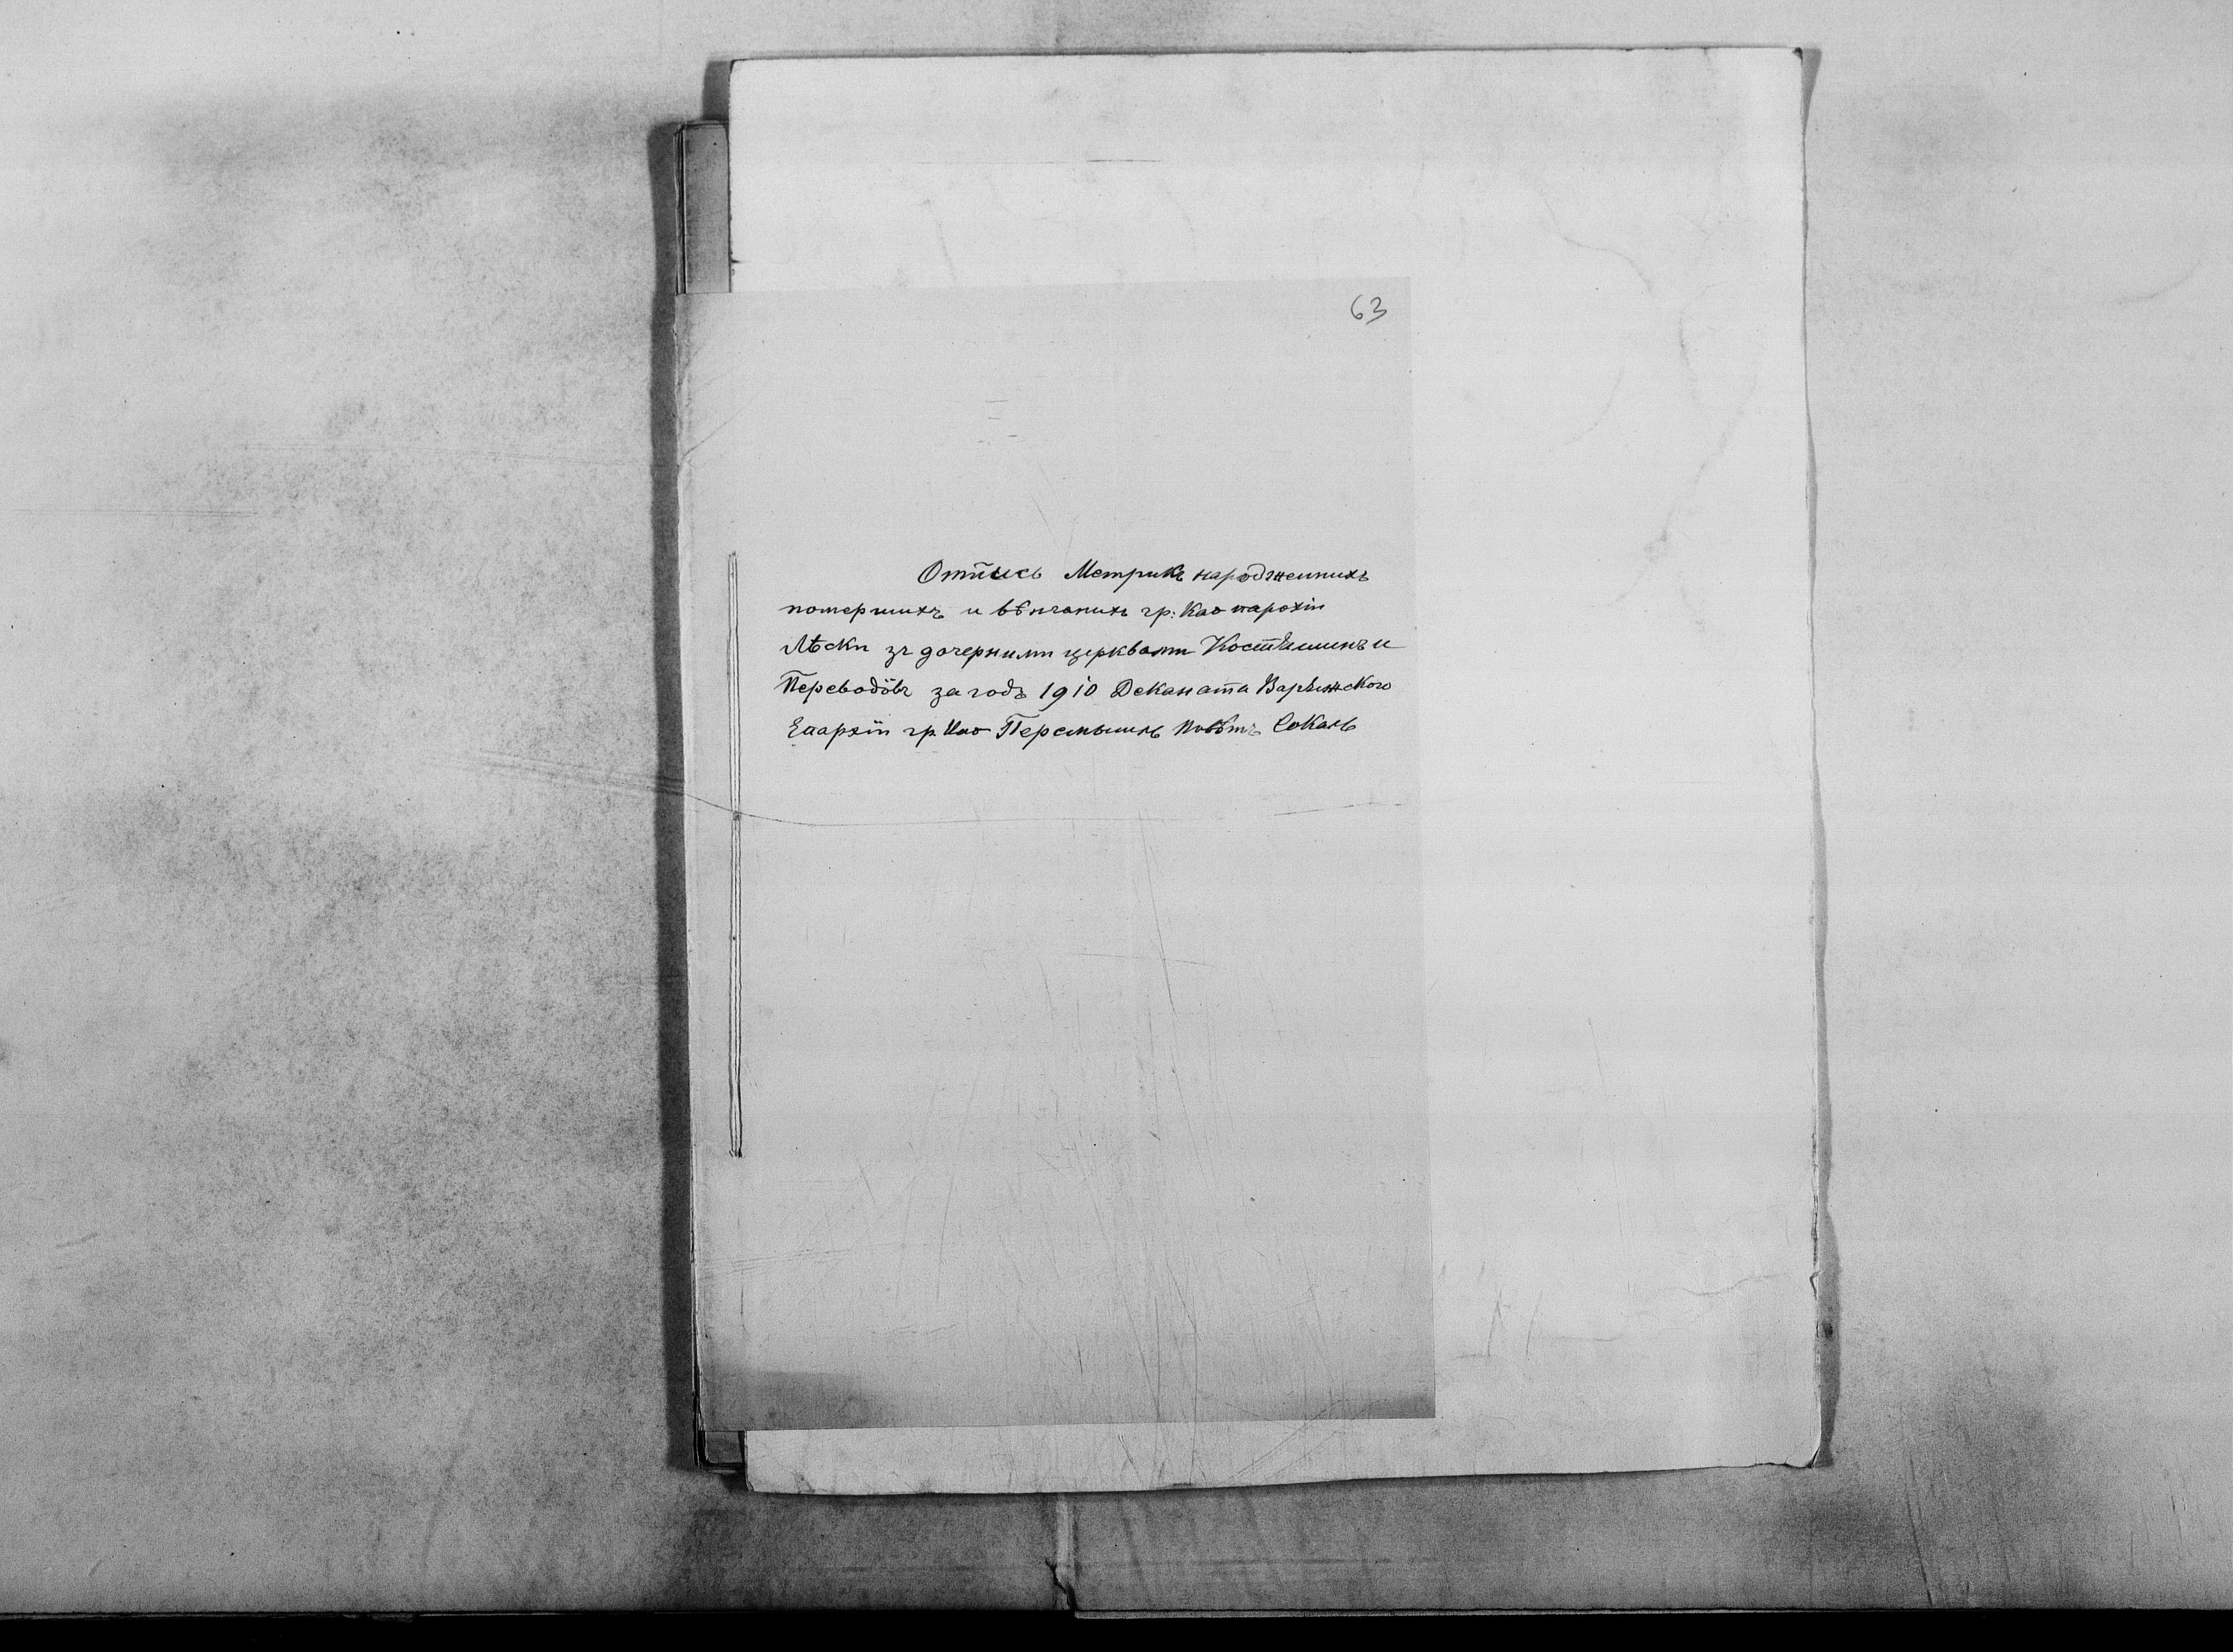 63
Отпись Метрикъ народженныхъ
помершихъ и вѣнчаныхъ гр: Као парохіи
Лѣски зъ дочерними церквами Костяшинъ и
Переводôвъ за годъ 1910 Деканата Варяжского
Епархіи гр. Као Перемышль повѣтъ Сокаль